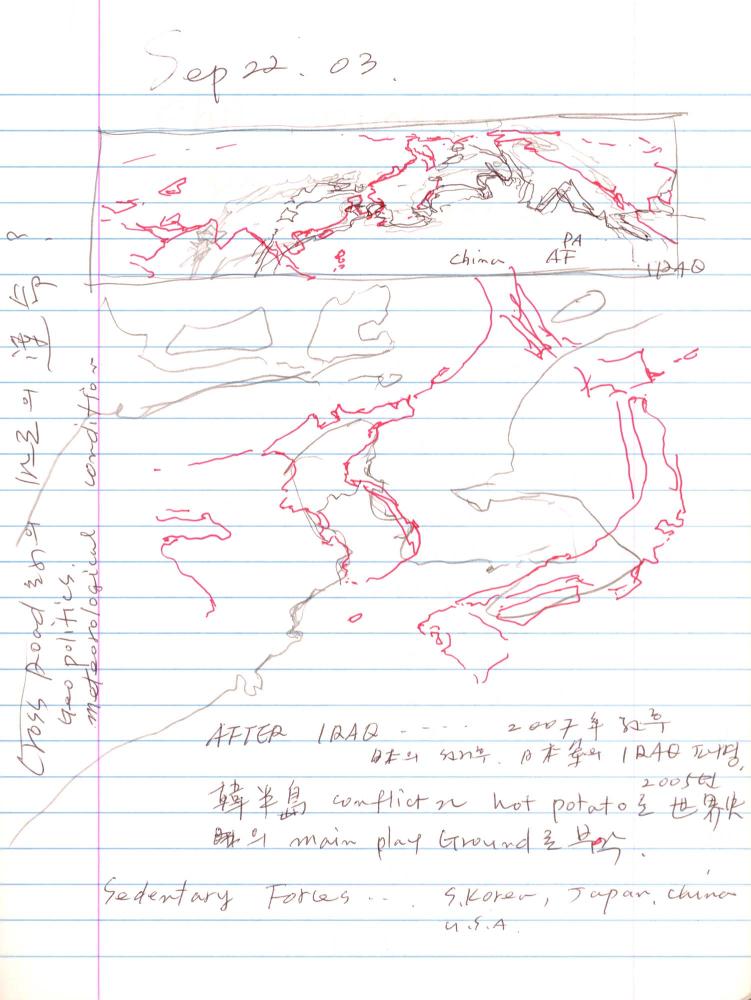 Sep 22. 03.
China
PA
AF
IRAQ
Cross Road 로서의 한국의
Geo politics.
meteorological condition
AFTER IRAQ ..... 2007年
日本의 日本軍의 IRAQ 파병,
2005년
韓半島 conflict hot potato로 世界史
의 main play Ground로 부각.
Sedentary Forces ... S.Korea, Japan, China
U.S.A.